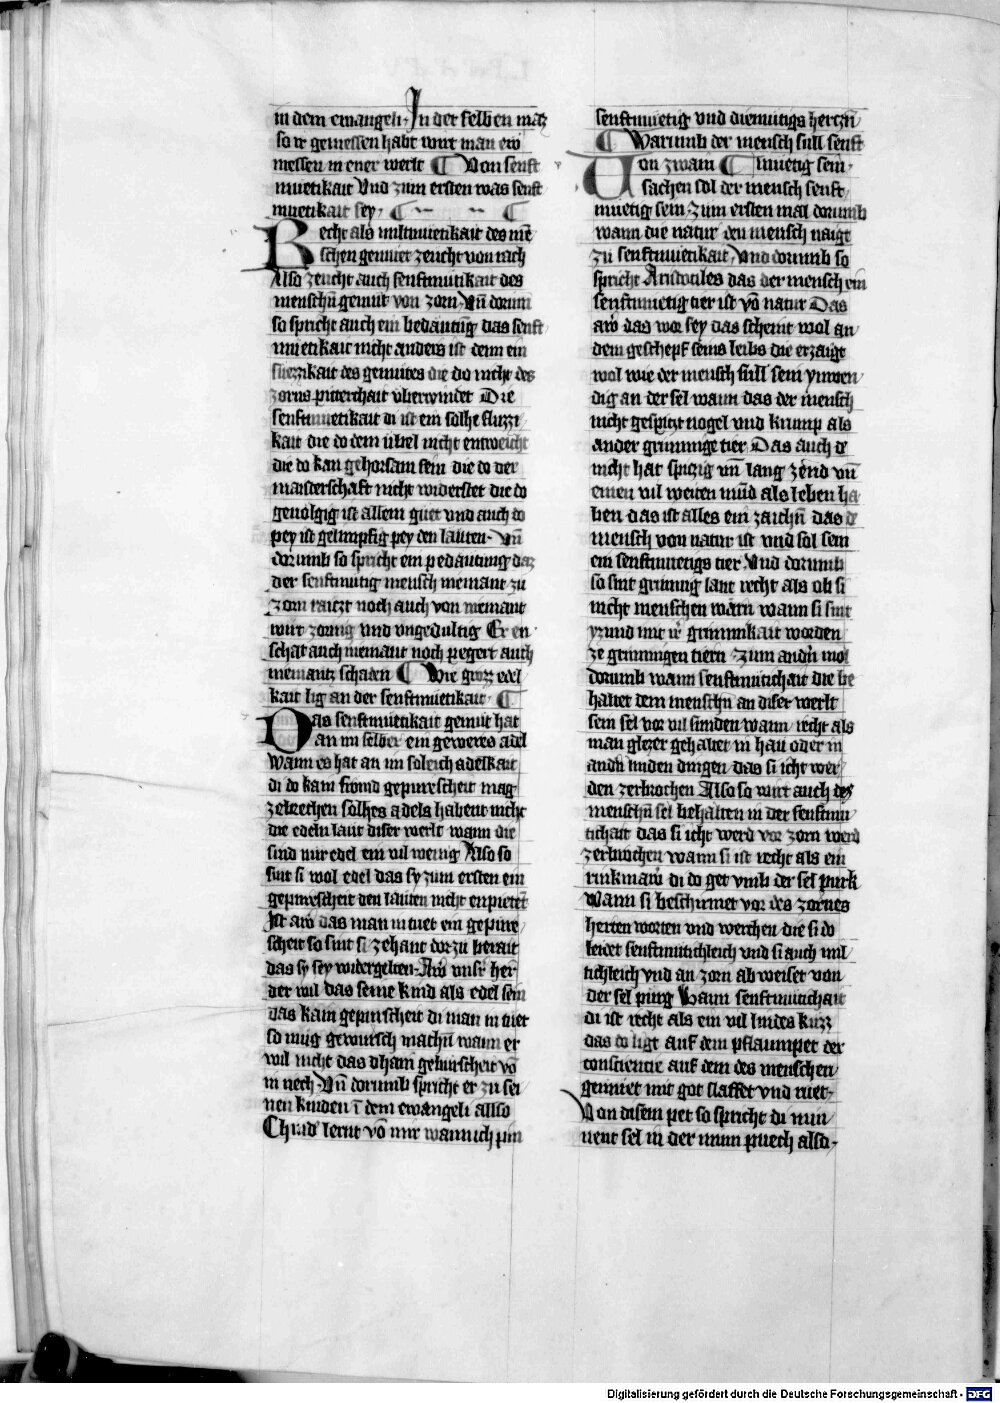 in dem ewangeli · In der selben maz
so ir gemessen habt wirt man ew
messen in ener werlt ¶ Von senft
muetikait Vnd zum ersten was senft
muetikait sey · ¶ ¶
Recht als miltmuetikait des mē
schen gemuet zeucht von rach
Also zeucht auch senftmutikait des
menschn̄ gemut von zorn · Vn̄ dorum
so spricht auch ein bedautūg das senft
muetikait nicht anders ist denn ein
suezzikait des gemutes die do nicht des
zorns pitterchait vberwindet Die
senftmuetikait di ist ein solhe fluzzi
kait die do dem vbel nicht entweicht
die do kan gehorsam sein die do der
maisterschaft nicht widerstet die do
geuolgig ist allem guet vnd auch do
pey ist gelimpfig pey den lauten · Vn̄
dorumb so spricht ein pedautung daz
der senftmutig mensch niemant zu
zorn raiczt noch auch von niemant
wirt zornig vnd vngedultig Er en
schat auch niemant noch pegert auch
niemantz schaden ¶ Wie groz edel
kait lig an der senftmuetikait · ¶
Das senftmuetikait gemut hat
an im selber ein geweres adel
Wann es hat an im soleich adelkait
di do kain fromd gepurescheit mag
zebrechen solhes adels habent nicht
die edeln laut diser werlt wann die
sind nur edel ein vil wenig Also so
sint si wol edel das sy zum ersten ein
gepurescheit den lauten nicht enpietet
Ist aw̄ das man in tuet ein gepure
scheit so sint si zehant dorzu berait
das sy sey widergelten · Aw̄ vnsr̄ her
der wil das seine kind als edel sein
das kain gepurscheit di man in tuet
so mug gewursch machn̄ wann er
wil nicht das dhain geburscheit vō
in nech · Vn̄ dorumb spricht er zu sei
nen kinden ī dem ewangeli allso
Chind lernt vō mir wann ich pin
senftmuetig vnd diemutigs herczn̄
¶ Warumb der mensch sull senft
Von zwain ¶ muetig sein ·
sachen sol der mensch senft
muetig sein · zum ersten mal dorumb
wann die natur den mensch naigt
zu senftmuetikait · Vnd dorumb so
spricht Aristotiles das der mensch ein
senftmuetig tier ist vō natur Das
aw̄ das wor sey das scheint wol an
dem geschepf seins leibs die erzaigt
wol wie der mensch sull sein ynwen
dig an der sel wann das der mensch
nicht gespiczt nogel vnd krump als
ander grimmige tier Das auch d
nicht hat spiczig vn̄ lang zend vn̄
einen vil weiten mūd als leben ha
ben das ist alles ein zaichn̄ das d
mensch von natur ist vnd sol sein
ein senftmuetigs tier · Vnd dorumb
so sint grimmig laut recht als ob si
nicht menschen warn wann si sint
yzund mit ir grimmkait worden
ze grimmigen tiern · Zum andn̄ mol
dorumb wann senftmutichait die be
haltet dem menschn̄ an diser werlt
sein sel vor vil sunden wann recht als
man glezer gehaltet in hau oder in
andn̄ linden dingen das si icht wer
den zerbrochen Also so wirt auch des
menschn̄ sel behalten in der senftmu
tichait das si icht werd vor zorn werd
zerbrochen wann si ist recht als ein
rinkmaur di do get vmb der sel purk
Wann si beschirmet vor des zornes
herten worten vnd werchen die si do
leidet senftmutichleich vnd si auch mil
tichleich vnd an zorn abweiset von
der sel purg Wann senftmutichait
di ist recht als ein vil lindes kuzz
das do ligt auf dem pflaumpet der
consciencie auf dem des menschen
gemuet mit got slaffet vnd ruet ·
Von disem pet so spricht di min
nent sel in der minn puech also ·
Digitalisierung gefördert durch die Deutsche Forschungsgemeinschaft - DFG